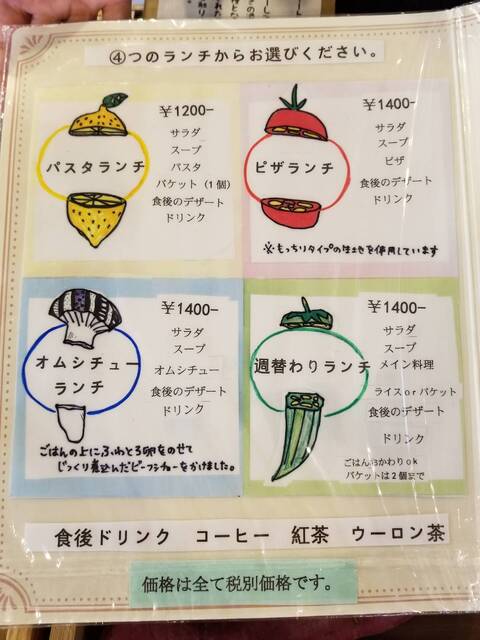 ④つのランチからお選びください。
パスタランチ
￥1200−
サラダ
スープ
パスタ
バケット（1個）
食後のデザート
ドリンク
ピザランチ
￥1400−
サラダ
スープ
ピザ
食後のデザート
ドリンク
※もっちりタイプの生地を使用しています
オムシチュー
ランチ
￥1400−
サラダ
スープ
オムシチュー
食後のデザート
ドリンク
ごはんの上にふわとろ卵をのせて
じっくり煮込んだビーフシチューをかけました。
週替わりランチ
￥1400−
サラダ
スープ
メイン料理
ライスorバケット
食後のデザート
ドリンク
ごはんおかわりok
バケットは2個まで
食後ドリンク　コーヒー　紅茶　ウーロン茶
価格は全て税別価格です。